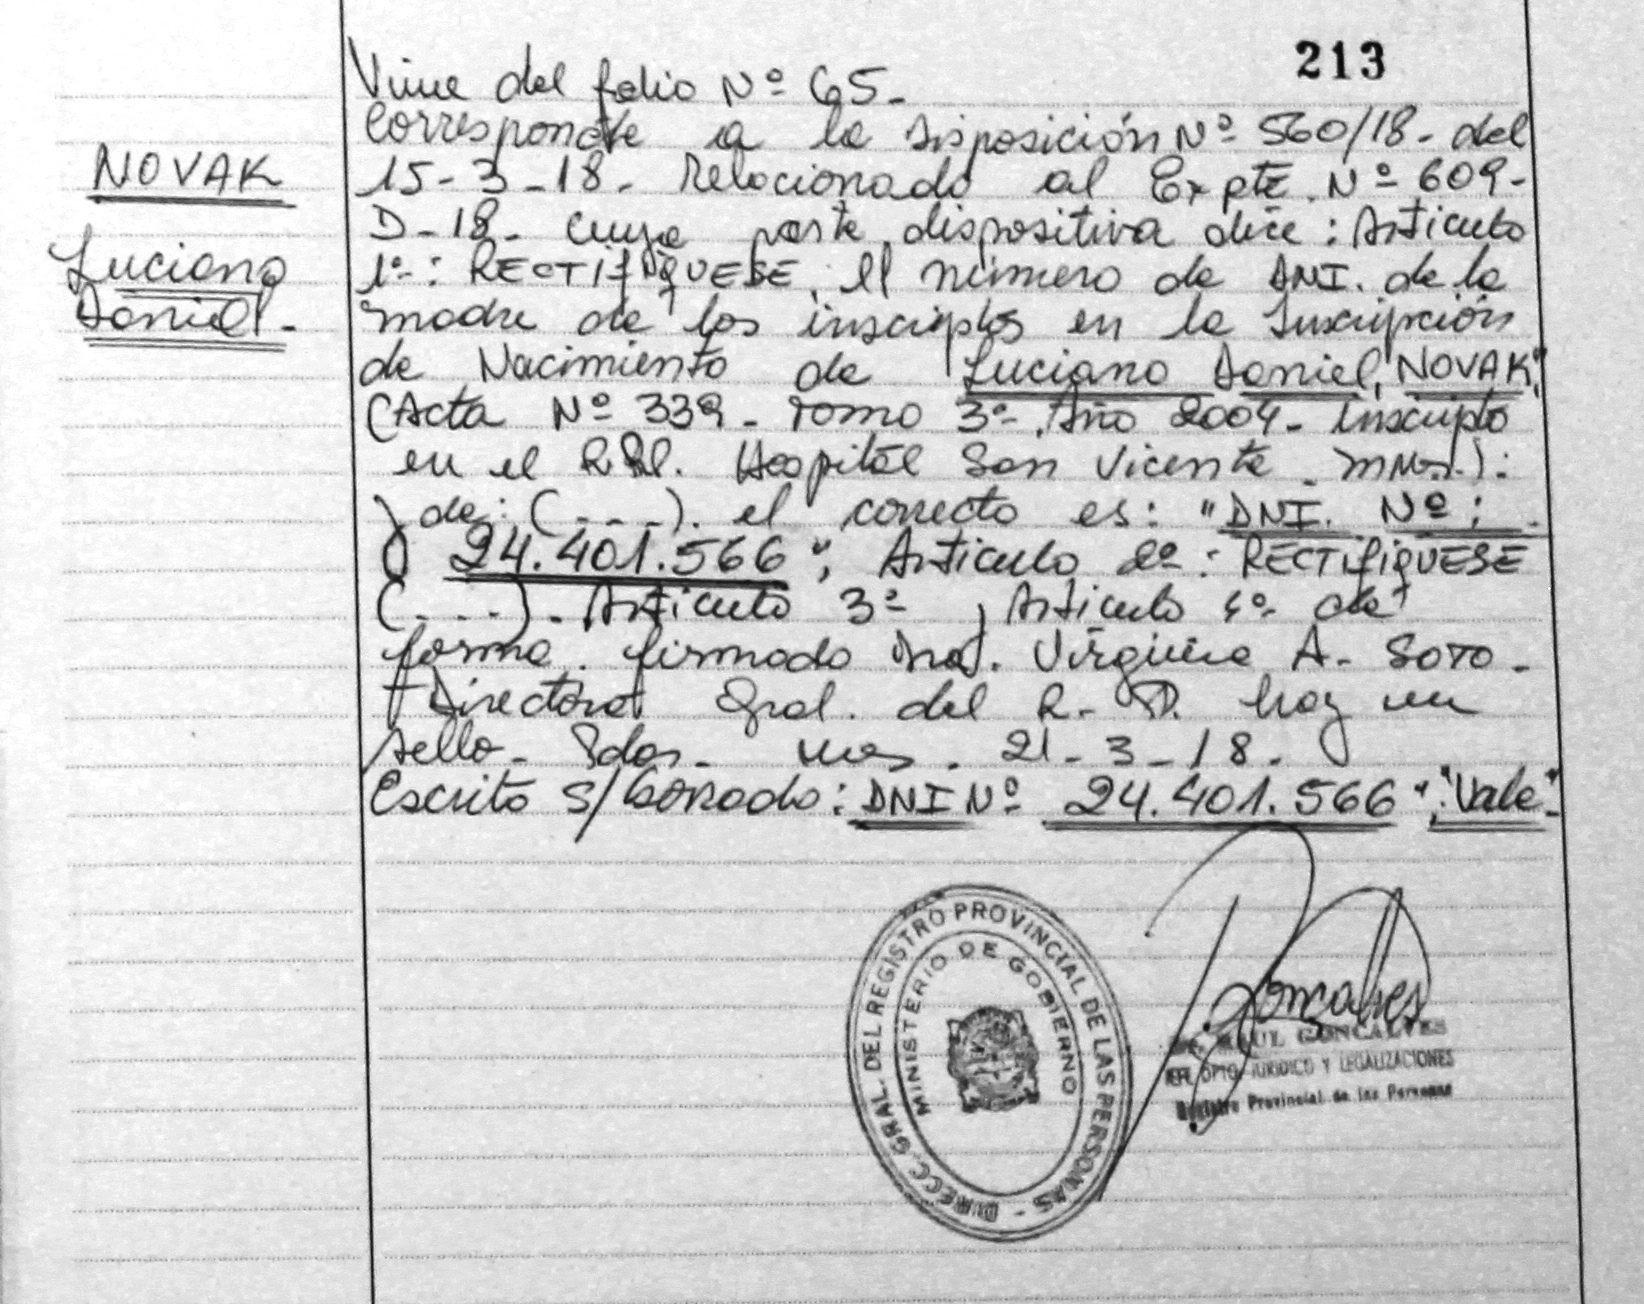 213
Viene del folio Nº 65-
Corresponde a la Disposición Nº 560/18- del
NOVAK
15-3-18- Relacionado al Expte. Nº 609-
D-18- cuya parte dispositiva dice: Articulo
Luciano
1º-: RECTIFIQUESE, el número de DNI. de la
Daniel-
madre de los inscriptos en la Inscripción
de Nacimiento de "Luciano Daniel, NOVAK"
(Acta Nº 339- Tomo 3º- Año 2004- Inscripto
en el Hospital San Vicente
de: (---). el correcto es: "DNI. Nº:
24.401.566", Articulo 2º: RECTIFIQUESE
(---). Articulo 3º, Articulo 4º- de
forma. firmado Dra. Virginia A- SOTO-
Directora Gral. del R. P. hay un
sello- Pdas- Mnes. 21-3-18-
Escrito s/borrado: DNI Nº 24.401.566": "Vale"-
DIRECC. GRAL. DEL REGISTRO PROVINCIAL DE LAS PERSONAS -
MINISTERIO DE GOBIERNO
Goncalves
RAUL GONCALVES
DPTO. JURIDICO Y LEGALIZACIONES
Registro Provincial de las Personas